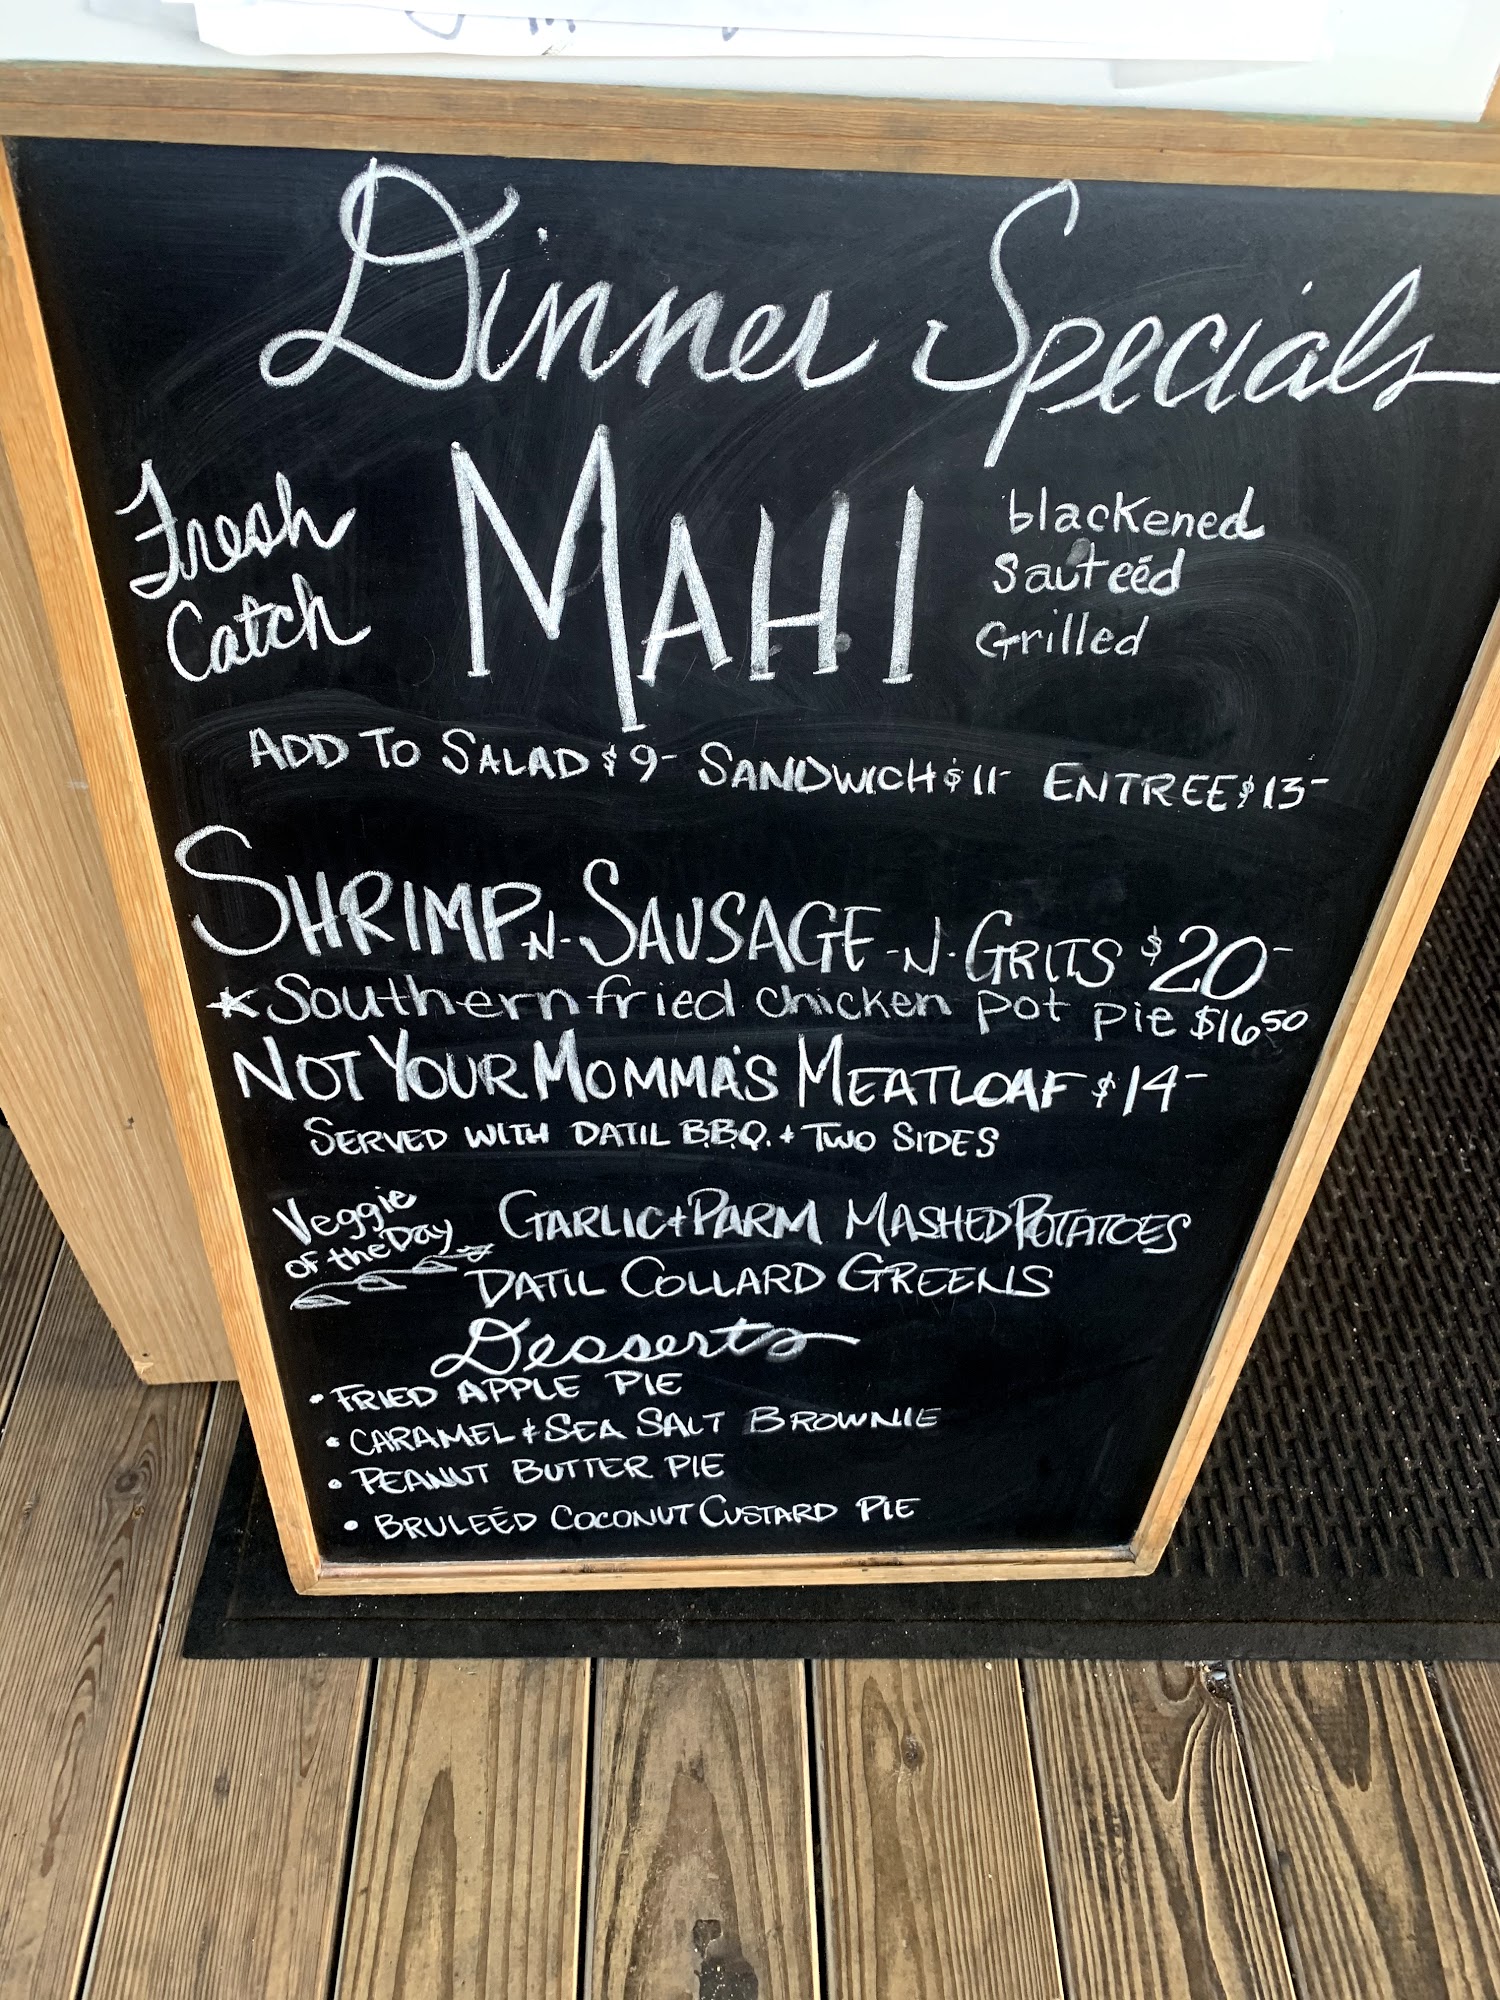 Dinner Specials
Fresh
Catch
MAHI
blackened
Sauteéd
Grilled
ADD TO SALAD $9- SANDWICH $11- ENTREE $13-
SHRIMP-N-SAUSAGE-N-GRITS $20-
*Southern fried chicken pot pie $16 50
NOT YOUR MOMMA'S MEATLOAF $14-
SERVED WITH DATIL B.B.Q. + TWO SIDES
Veggie
of the Day
GARLIC + PARM MASHED POTATOES
DATIL COLLARD GREENS
Desserts
• FRIED APPLE PIE
• CARAMEL & SEA SALT BROWNIE
• PEANUT BUTTER PIE
• BRULEÉD COCONUT CUSTARD PIE